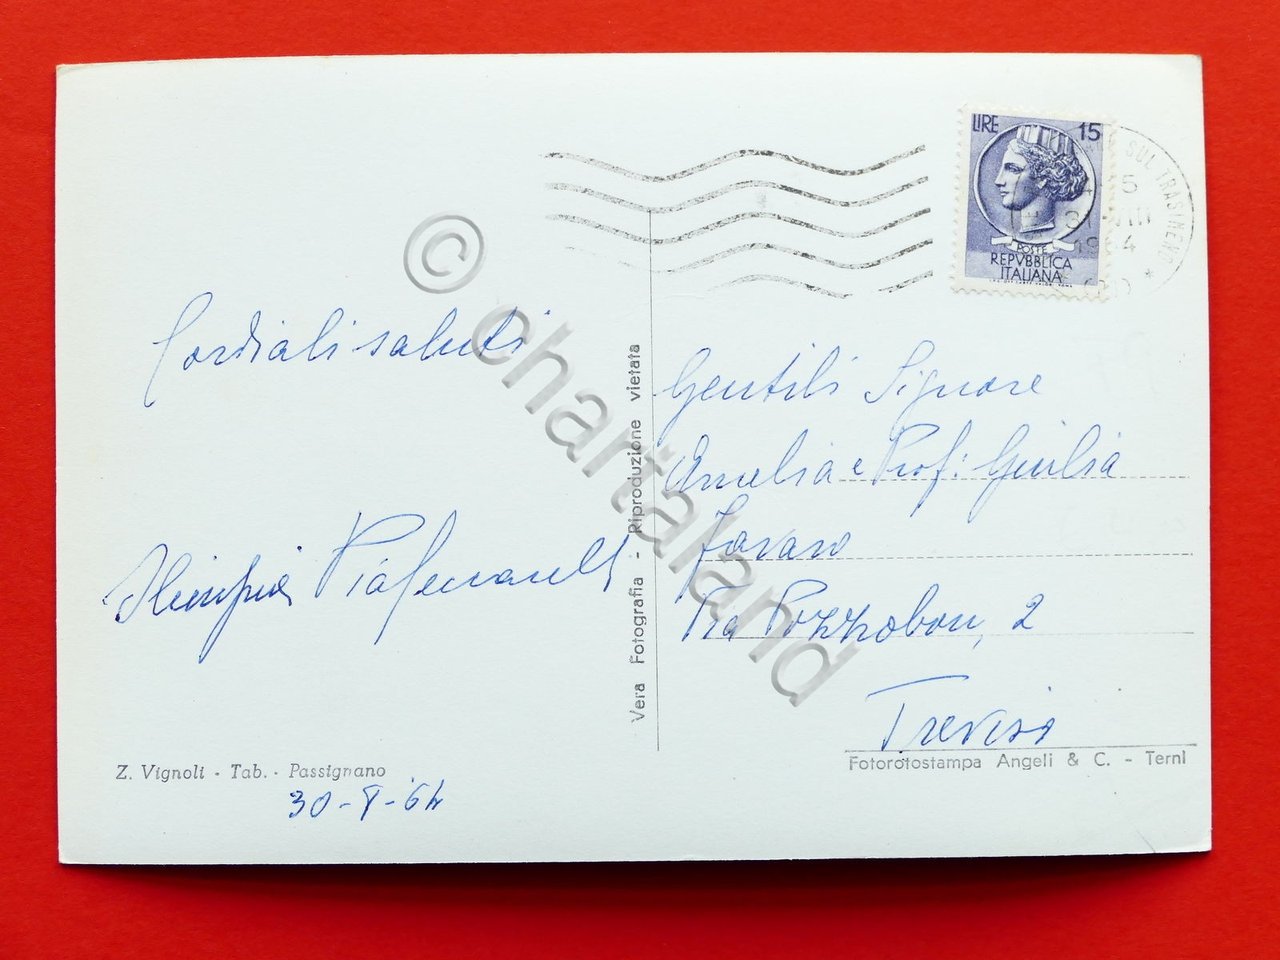 LIRE 15
POSTE
REPVBBLICA
ITALIANA
SUL TRASIMENO *
1964
© chartaland
Cordiali saluti
Vera Fotografia - Riproduzione vietata
Gentili Signore
Amelia e Prof: Giulia
Favaro
Via Pozzobon, 2
Treviso
Z. Vignoli - Tab. - Passignano
30-8-64
Fotorotostampa Angeli & C. - Terni